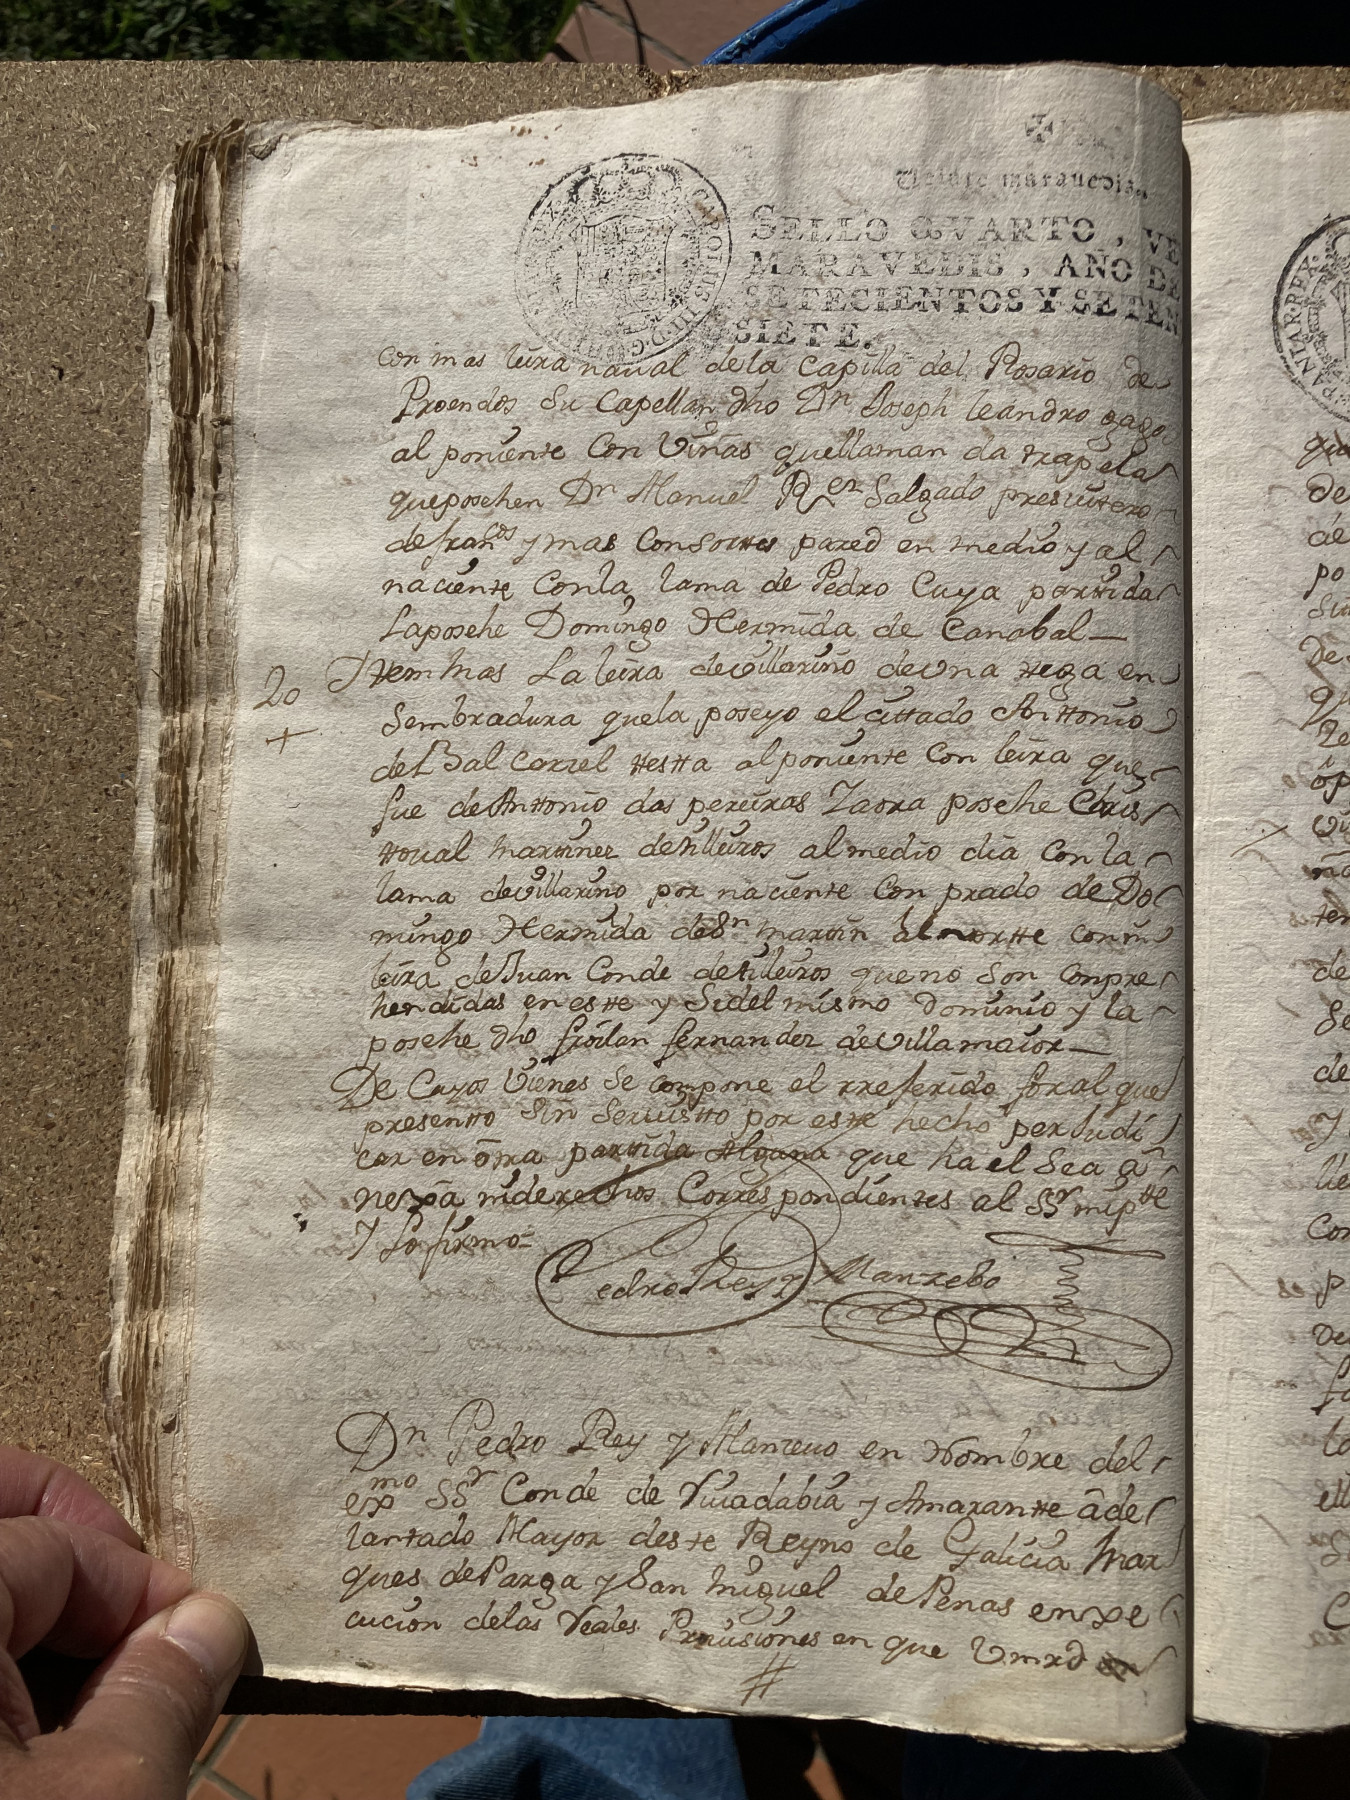 Veinte maravedis.
SELLO QVARTO, VE
MARAVEDIS, AÑO DE
SETECIENTOS Y SETEN
SIETE.
CAROLUS III D.G. HISPANIAR. REX
con mas leira naual de la Capilla del Rosario de
Proendos su Capellan dho Dn Joseph leandro gago
al poniente Con Viñas quellaman da trapela
queposehen Dn Manuel Rez Salgado presuitero
defrancos y mas Consortes pared en medio y al
naciente Conla lama de Pedro Cuya partida
Laposehe Domingo Hermida de Canabal
20 Ittem mas La leira devillarino de una tega en
+
Sembradura quela poseyo el cittado Anttonio
de Bal Carzel testta al poniente con leira que
fue deAnttonio das pereiras Yaora posehe Chris
ttoual martinez detilleiros almedio dia Con la
lama devillarino por naciente Con prado de Do
mingo Hermida deSn martin al nortte con
leira de Juan Conde detileiros queno son conpre
hendidas en estte y Sidel mismo Dominio y la
posehe dho froilan fernandez devillamaior
De Cuyos Vienes se compone el rreferido foral que
presentto Sin Seruistto por este hecho perJudi
car en otra partida Alguna que ha el Sea a
ni derechos Correspondientes al SSr mi pte
Y Lo firmo
Pedro Rey y Manzebo
Dn Pedro Rey y Manzeuo en Nombre del
exmo SSr Conde de Viuadabia y Amarantte ade
lantado Mayor deste Reyno de Galicia Mar
ques deParga y San Miguel de Penas en exe
cucion delas Reales Prouisiones en que Vmrd